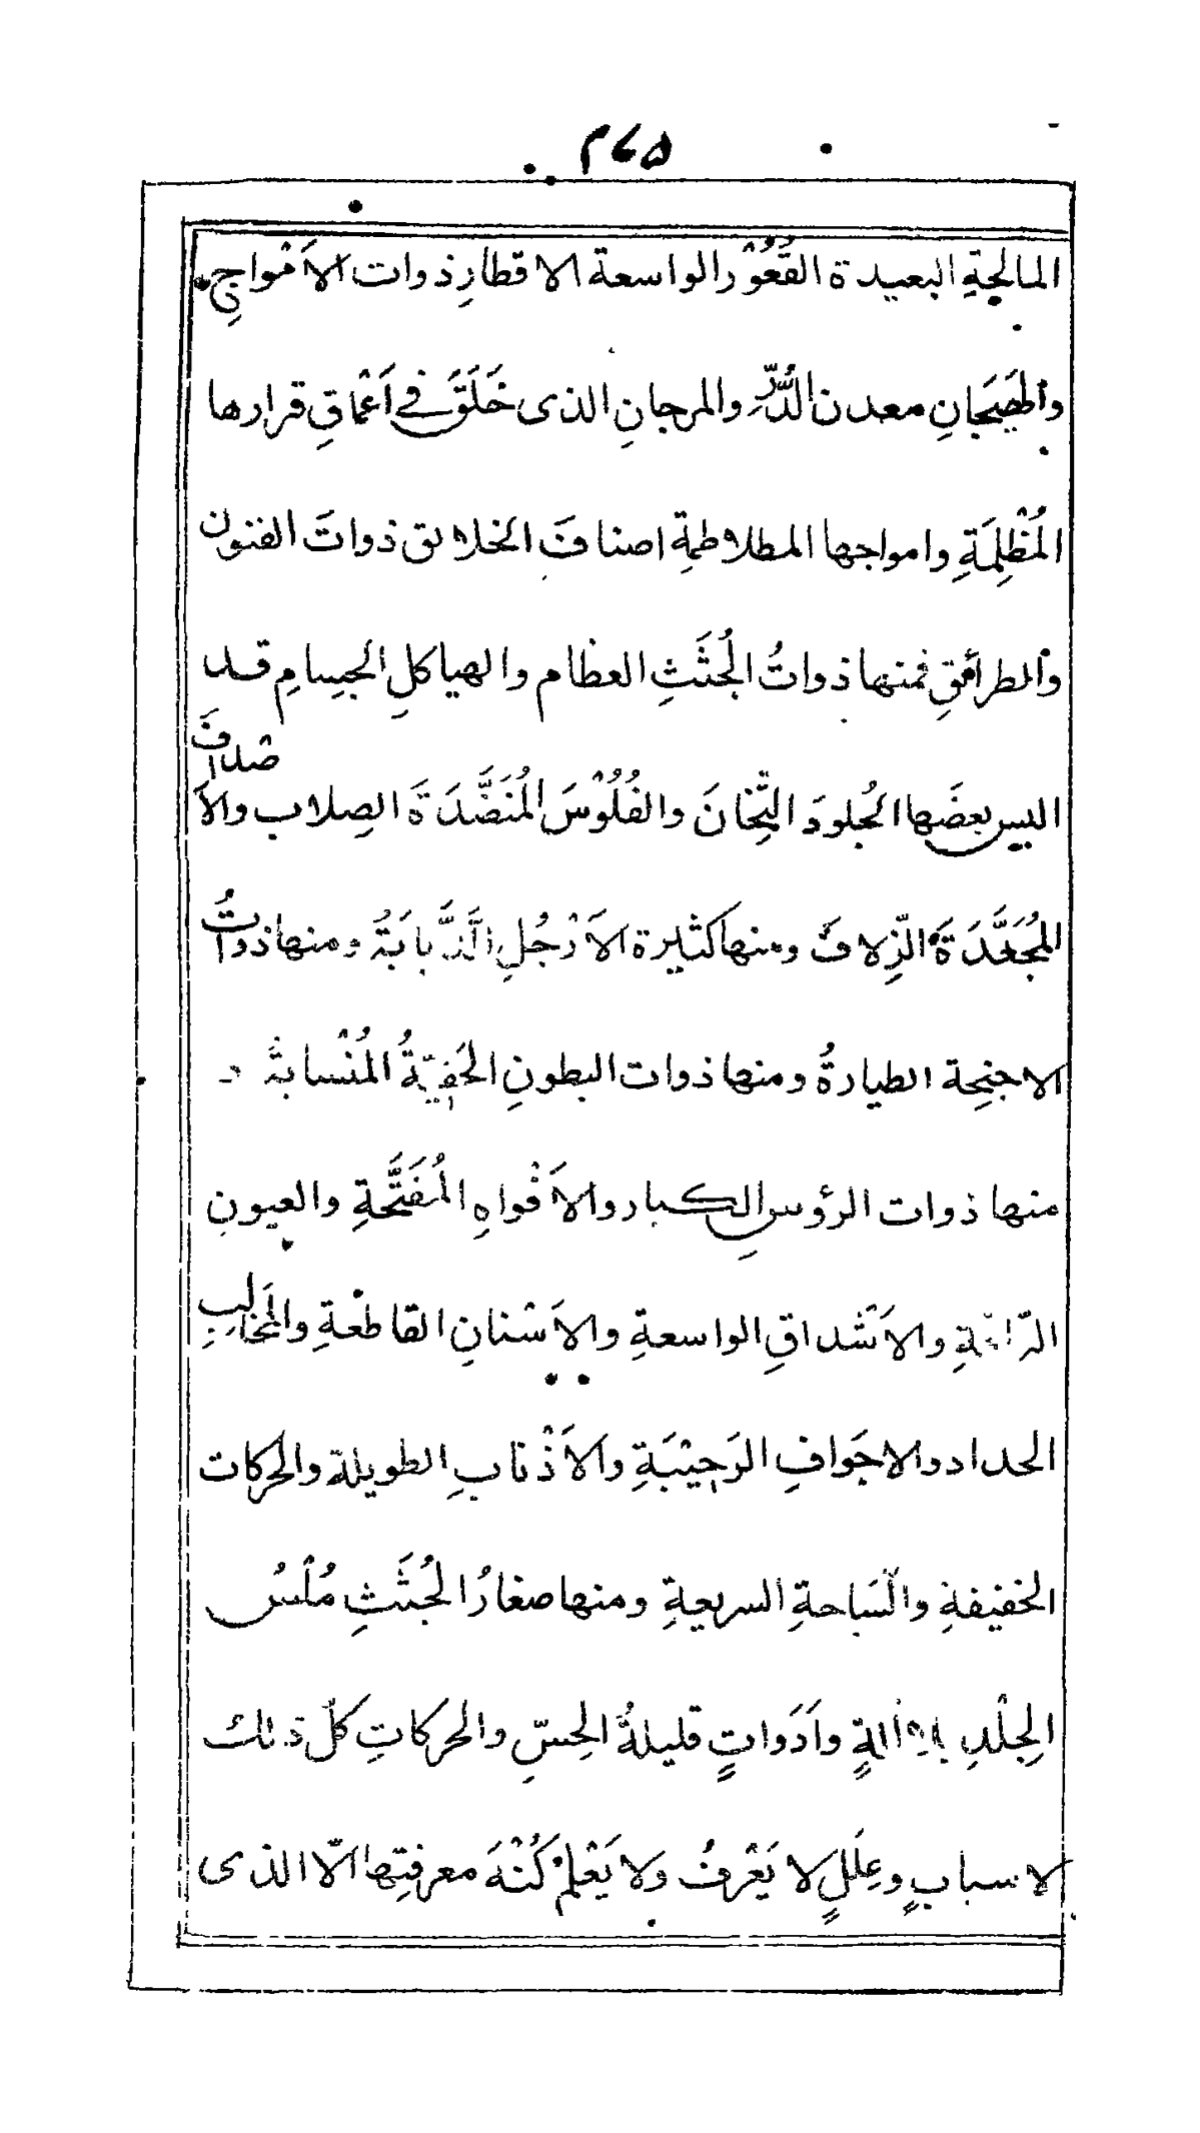 ۵۷م
المالحةِ البعيدة القُعُوْر الواسعة الاقطارِ ذوات الاَمْواجِ
والهَيَجَانِ معدن الدُّرِّ والمرجانِ الذى خَلَقَ فى اَعْماقِ قرارها
المُظْلِمَةِ وامواجها المطلاطمةِ اصنافَ الخلائق ذواتَ الفنون
والطرائقِ فمنها ذواتُ الجُثَثِ العظام والهياكلِ الجسِامِ قد
البس بعضَها الجُلودَ الثِّخانَ والفُلُوْسَ المُنَضَّدَةَ الصِلاب والاَ
صْدافَ
المُجَعَّدَةَ الزِّلافَ ومنها كثيرة الاَرْجُلِ الدَّبابَةُ ومنها ذواتُ
الاجنِحة الطيارةُ ومنها ذوات البطونِ الخَفِيّةُ المُنْسابةُ و
منها ذوات الرؤسِ الكبار والاَفْواهِ المُفَتَّحَةِ والعيونِ
والاَشْداقِ الواسعةِ والاَسْنانِ القاطعْةِ والمَخالِبِ
الحداد والاجَوافِ الرَحِيْبَةِ والاَذْنابِ الطويلة والحركات
الخفيفةِ والسَّباحةِ السريعةِ ومنها صغارُ الجُثَثِ مُلْسُ
الجِلْدِ بلا اٰلةٍ واَدَواتٍ قليلةُ الحِسِّ والحركاتِ كلّ ذلك
لاسبابٍ وعِلَلٍ لا يَعْرِفُ ولا يَعْلَمُ كُنْهَ معرفتِها الّا الذى